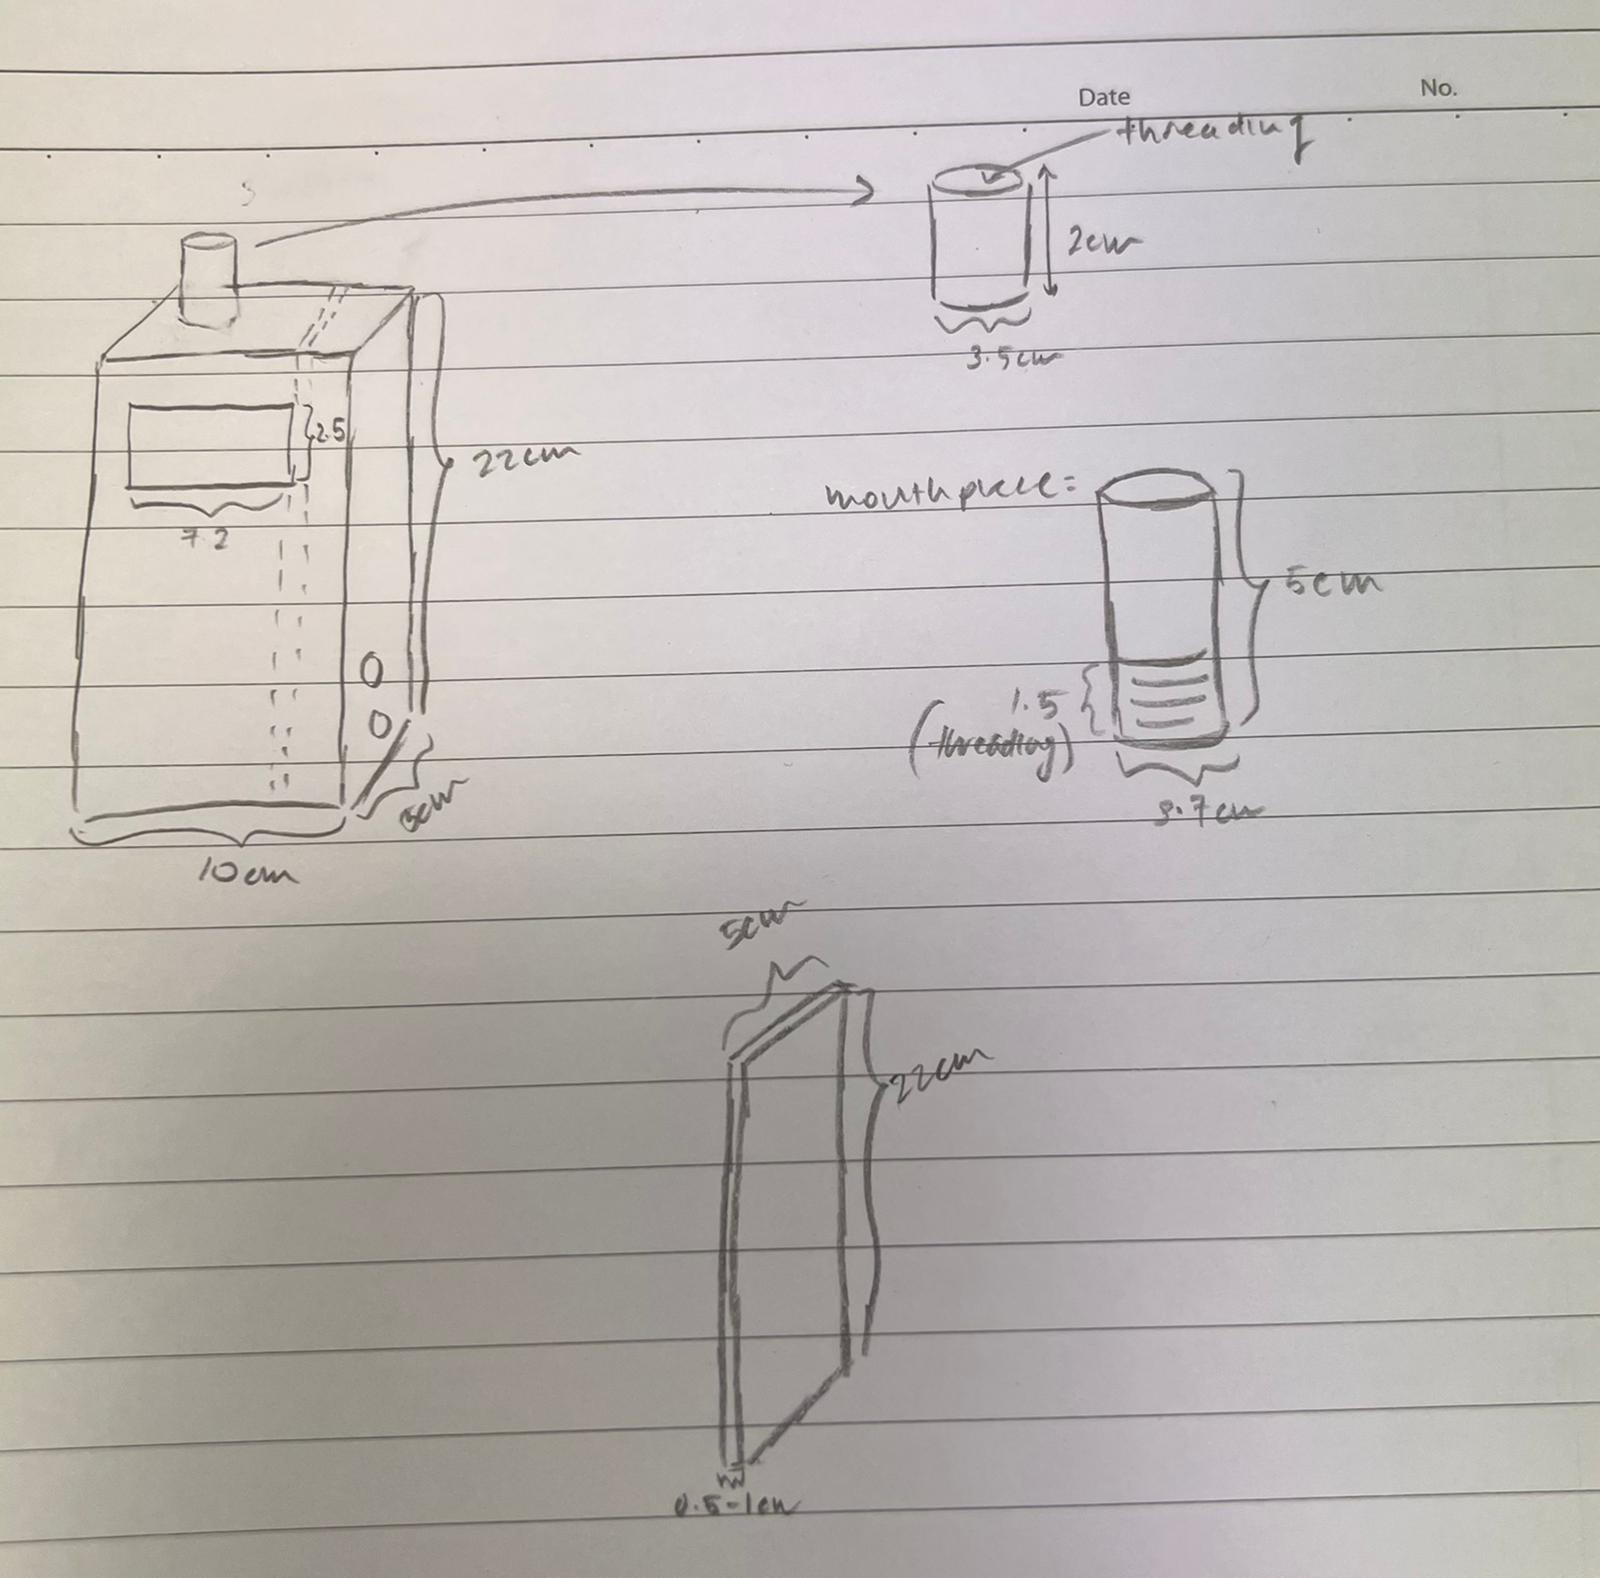 Date
No.
threading
2cm
3.5cm
2.5
22cm
7.2
mouthpiece:
5cm
1.5
(threading)
3.7cm
10cm
5cm
22cm
0.5-1cm